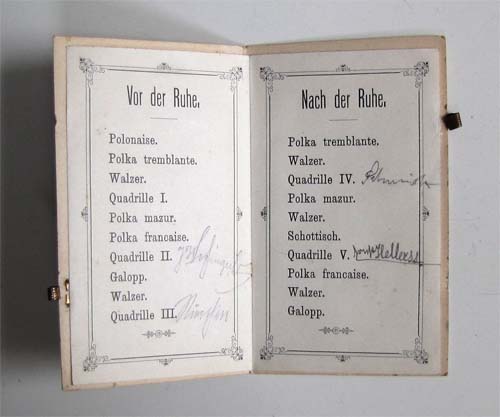 Vor der Ruhe.
Polonaise.
Polka tremblante.
Walzer.
Quadrille I.
Polka mazur.
Polka francaise.
Quadrille II.
Galopp.
Walzer.
Quadrille III.
Nach der Ruhe.
Polka tremblante.
Walzer.
Quadrille IV.
Polka mazur.
Walzer.
Schottisch.
Quadrille V.
Polka francaise.
Walzer.
Galopp.